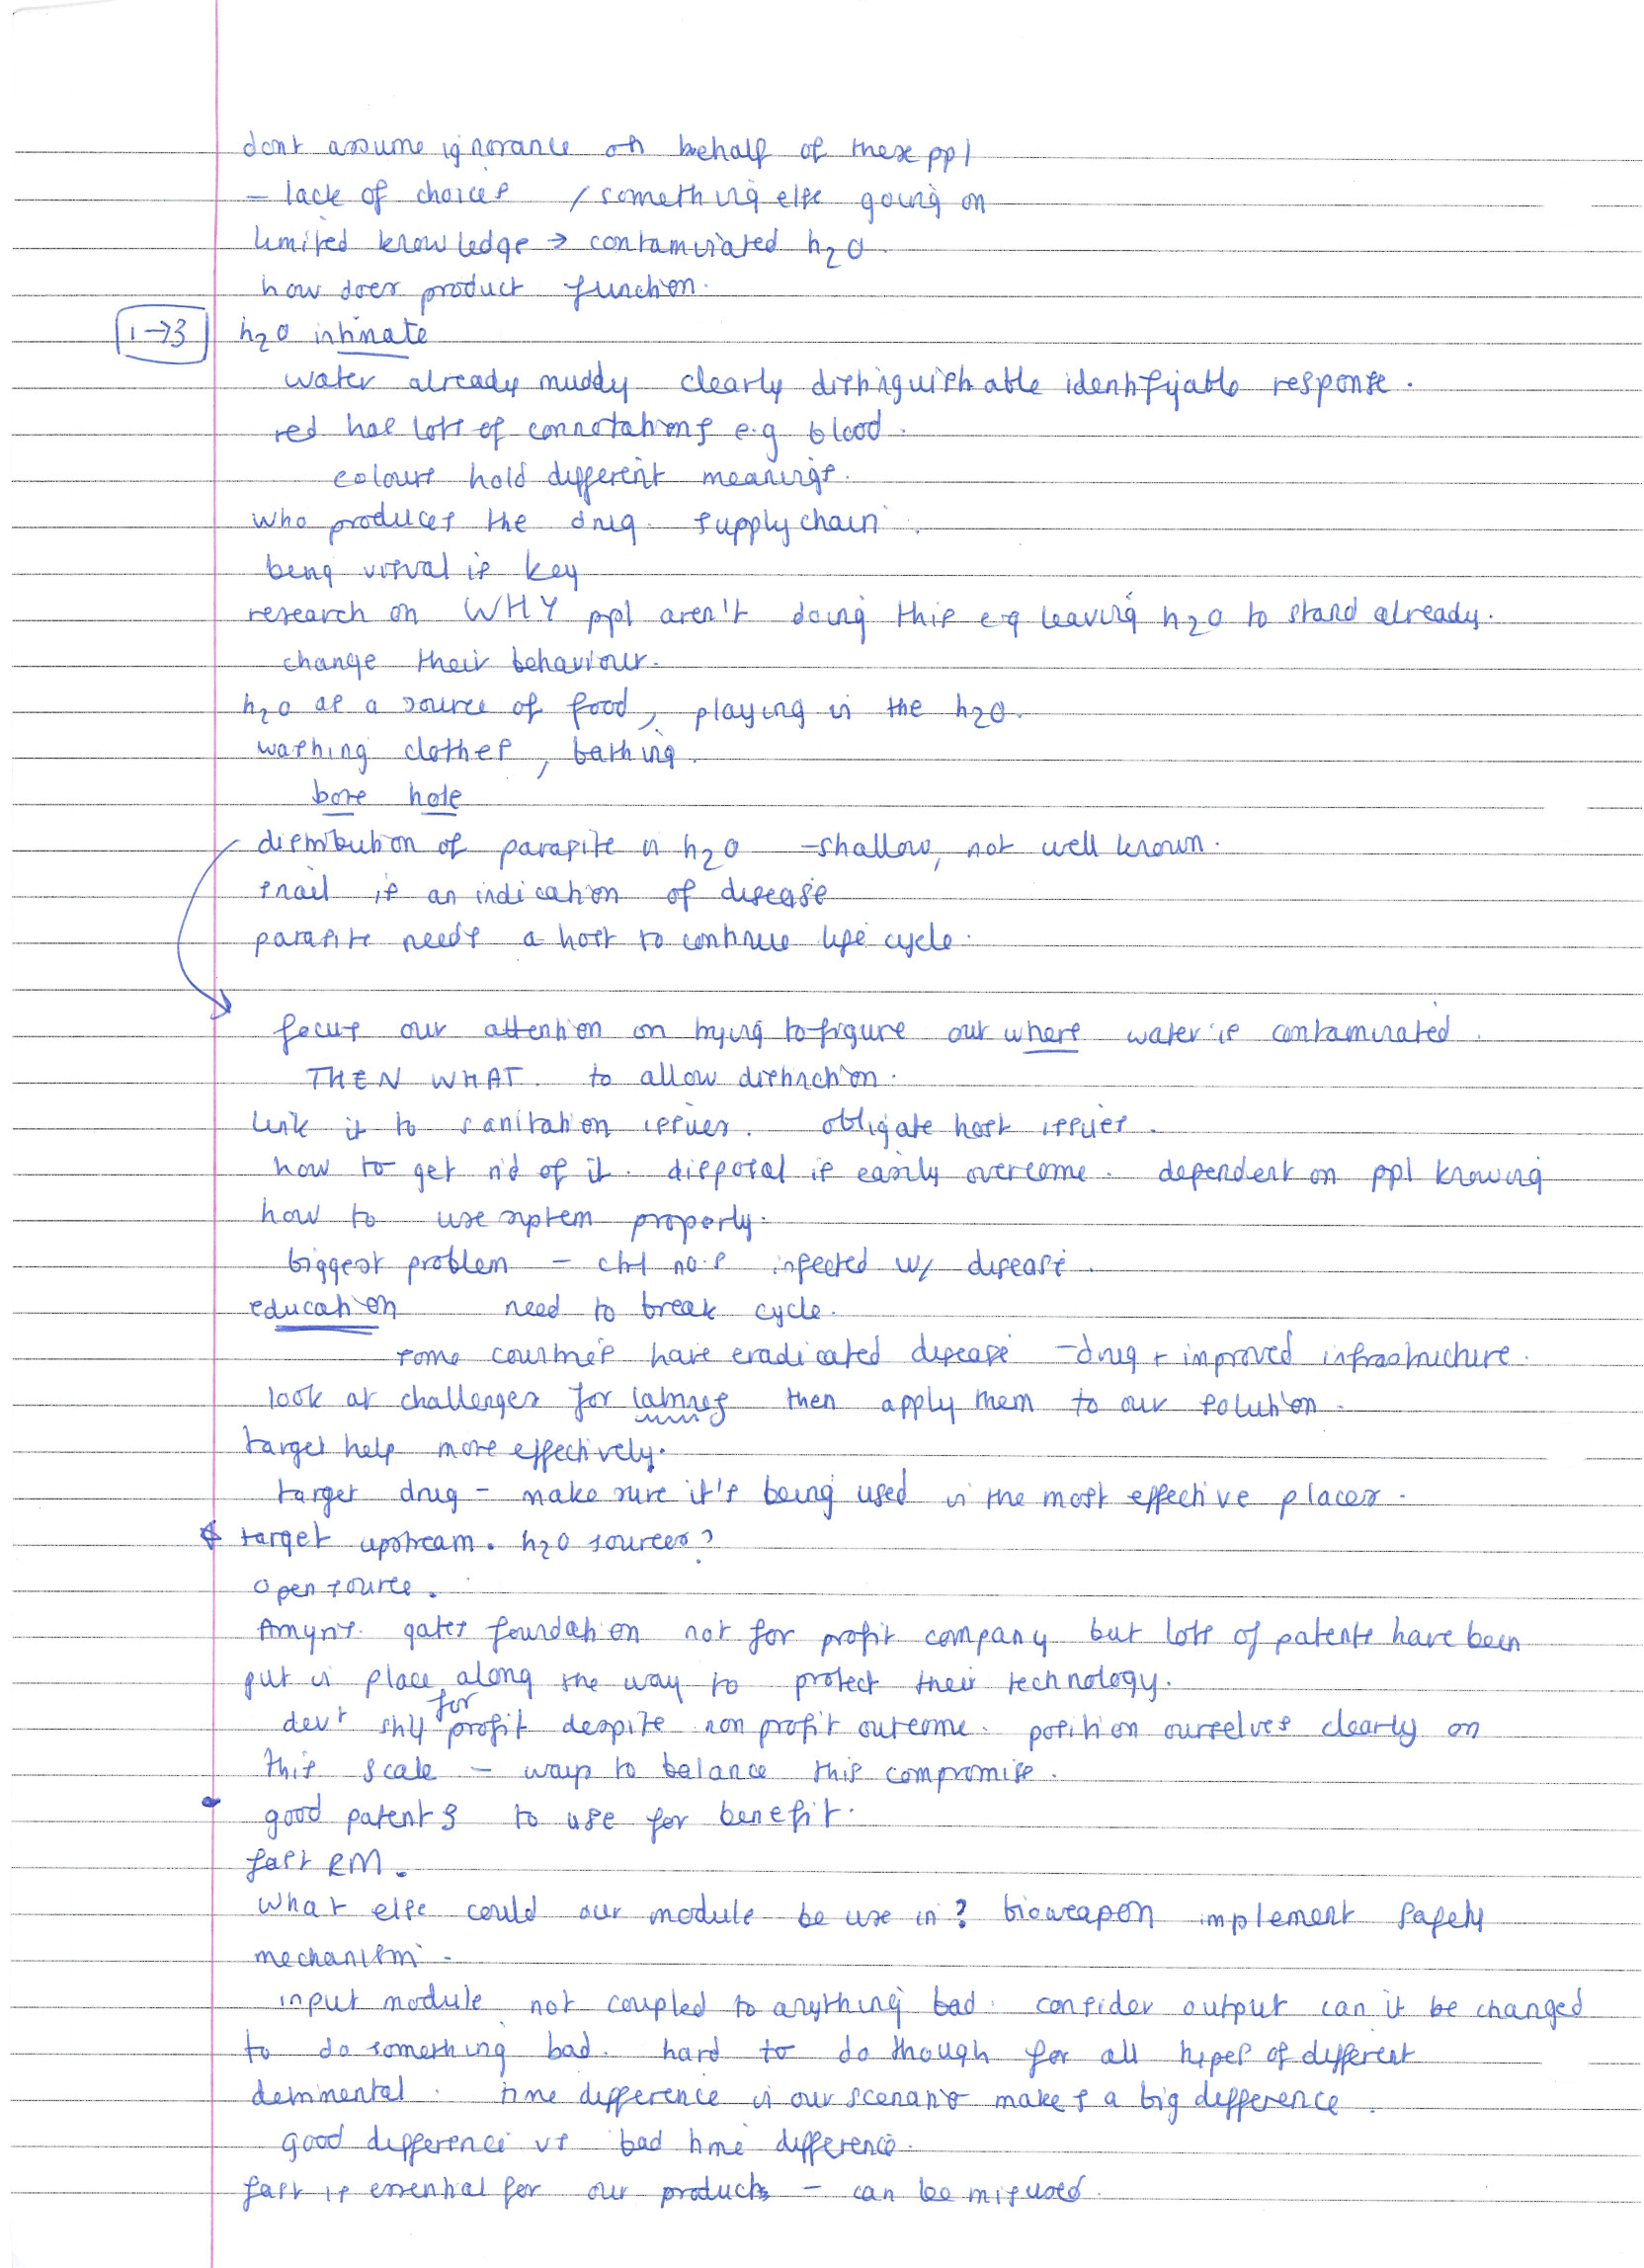 dont assume ignorance on behalf of these ppl
- lack of choices / something else going on
limited knowledge → contaminated h2O.
how does product function.
1→3 h2O intimate
water already muddy clearly distinguishable identifiable response.
red has lots of connotations e.g blood.
colours hold different meanings.
who produces the drug. supply chain.
being visual is key
research on WHY ppl aren't doing this eg leaving h2O to stand already.
change their behaviour.
h2O as a source of food, playing in the h2O.
washing clothes, bathing.
bore hole
distribution of parasite in h2O - shallow, not well known.
snail is an indication of disease
parasite needs a host to continue life cycle.
focus our attention on trying to figure out where water is contaminated.
THEN WHAT. to allow distinction.
link it to sanitation issues. obligate host issues.
how to get rid of it. disposal is easily overcome. dependent on ppl knowing
how to use system properly.
biggest problem - ctrl no.s infected w/ disease.
education need to break cycle.
some countries have eradicated disease - drug + improved infrastructure.
look at challenges for latrines then apply them to our solution.
target help more effectively.
target drug - make sure it's being used in the most effective places.
target upstream. h2O sources?
open source.
Amyris. gates foundation not for profit company but lots of patents have been
put in place along the way to protect their technology.
dev't still for profit despite non profit outcome. position ourselves clearly on
this scale - ways to balance this compromise.
good patents to use for benefit.
fast RM.
what else could our module be use in? bioweapon implement safety
mechanism -
input module not coupled to anything bad. consider output can it be changed
to do something bad. hard to do though for all types of different
detrimental. time difference in our scenario makes a big difference.
good difference vs bad time difference.
fast is essential for our products - can be misused.